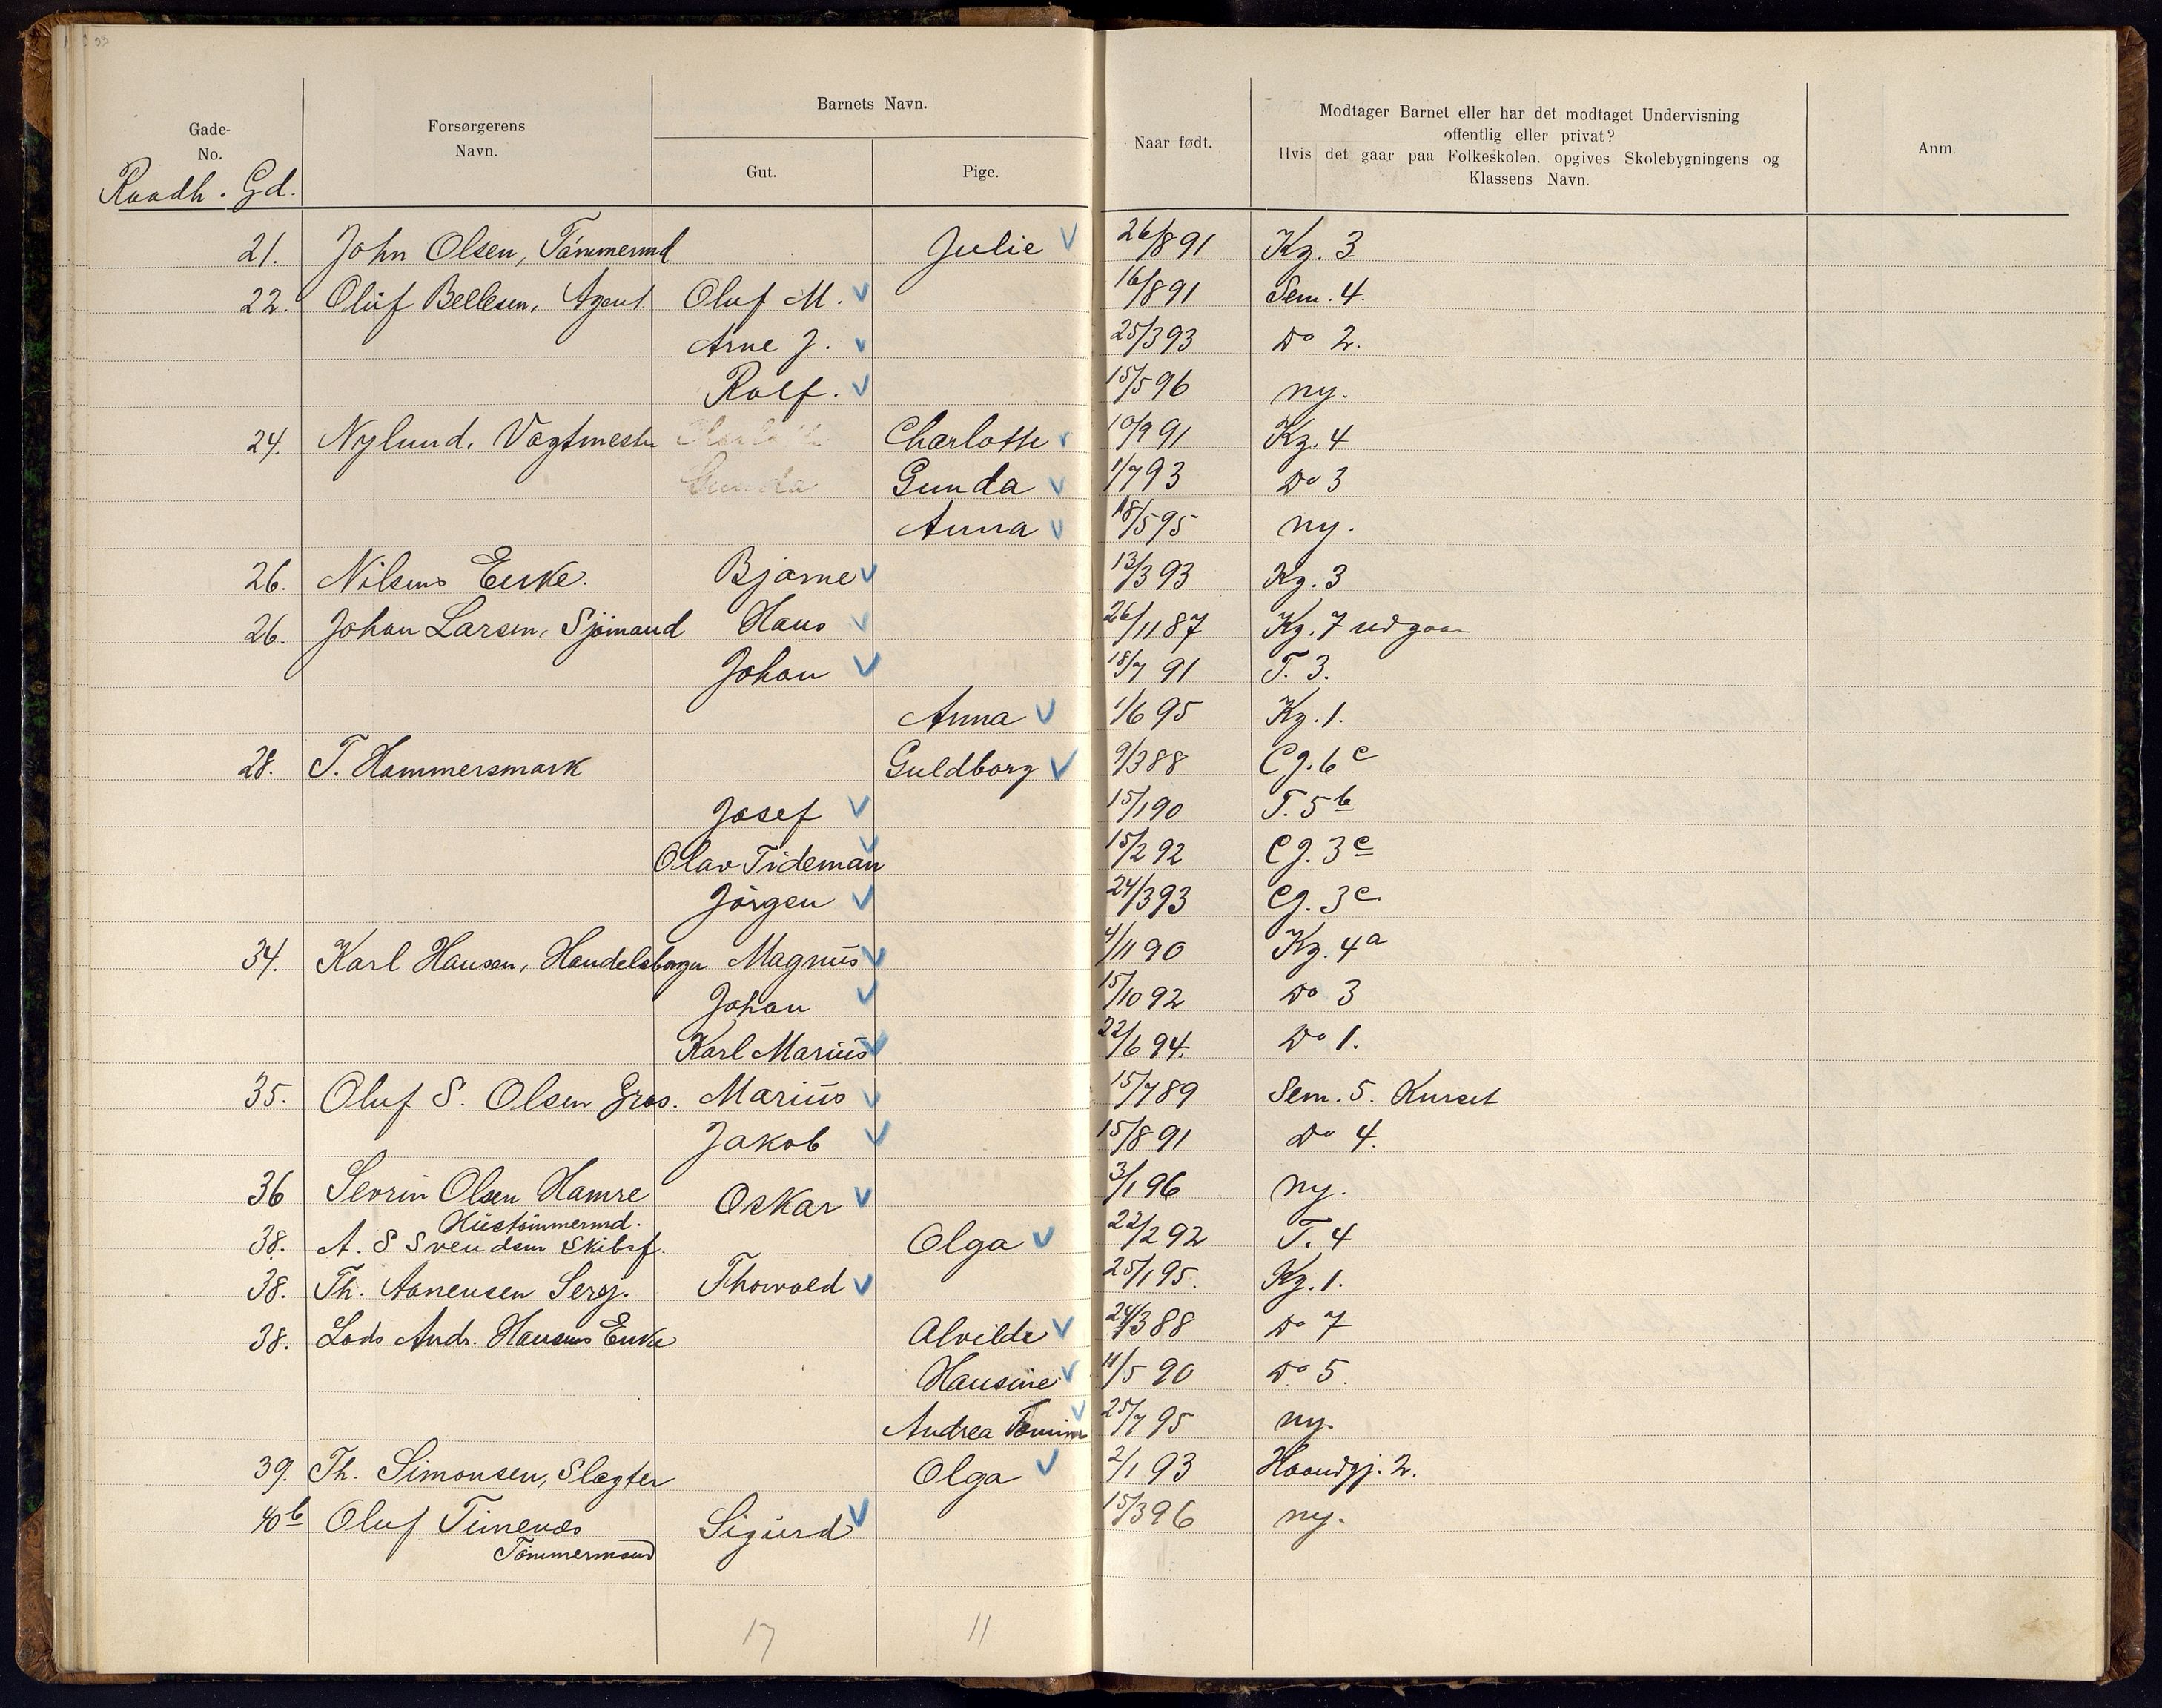 Gade-
No.
Raadh. Gd.
Forsørgerens
Navn.
Barnets Navn.
Gut.
Pige.
Naar født.
Modtager Barnet eller har det modtaget Undervisning
offentlig eller privat?
Hvis det gaar paa Folkeskolen, opgives Skolebygningens og
Klassens Navn.
Anm.
21. John Olsen, Tömmermd Julie 26/8 91 Kg. 3
22. Oluf Bellesen, Agent Oluf M. 16/8 91 Sem. 4.
Arne J. 25/3 93 Do 2.
Rolf. 15/5 96 ny.
24. Nylund, Vagtmester Charlotte 10/9 91 Kg. 4
Gunda Gunda 1/7 93 Do 3
Anna 18/5 95 ny.
26. Nilsens Enke. Bjarne 13/3 93 Kg. 3
26. Johan Larsen, Sjömand Hans 26/11 87 Kg. 7 udgaar
Johan 18/7 91 T. 3.
Anna 1/6 95 Kg. 1.
28. T. Hammersmark Guldborg 9/3 88 Cg. 6 c
Josef 15/1 90 T. 5 b
Olav Tideman 15/2 92 Cg. 3 c
Jörgen 24/3 93 Cg. 3 c
34. Karl Hansen, Handelsborger Magnus 4/11 90 Kg. 4 a
Johan 15/10 92 Do 3
Karl Marius 22/6 94. Do 1.
35. Oluf S. Olsen Gros. Marius 15/7 89 Sem. 5. Kurset
Jakob 15/8 91 Do 4.
36 Sevrin Olsen Hamre Oskar 3/1 96 ny.
Hüstömmermd.
38. A. S Svendsen Skibsf. Olga 22/2 92 T. 4
38. Th. Aanensen Serg. Thorvald 25/1 95. Kg. 1.
38. Lods Andr. Hansens Enke Alvilde 24/3 88 Do 7
Hansine 11/5 90 Do 5.
Andrea 25/7 95 ny.
39. Th. Simonsen, Slagter Olga 2/1 93 Haandgj. 2.
40 b Oluf Timenes Sigurd 15/3 96 ny.
Tömmermand
17 11